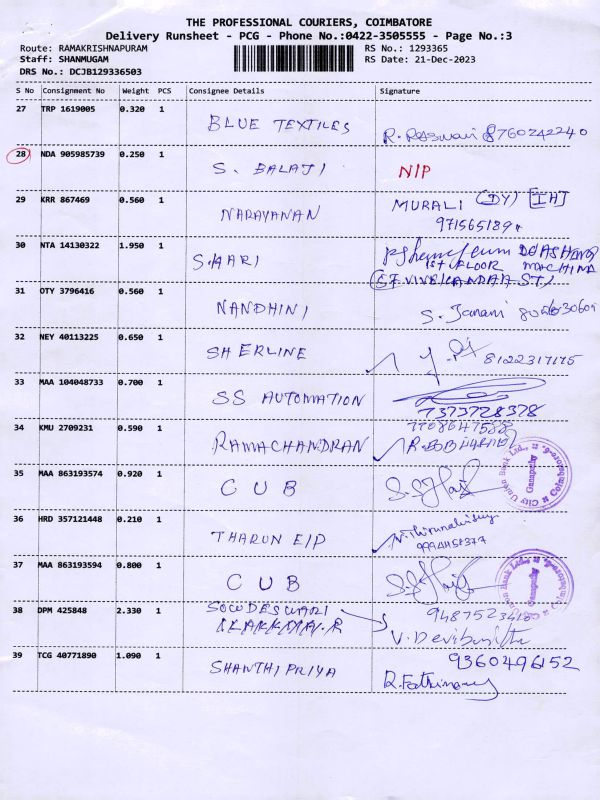 THE PROFESSIONAL COURIERS, COIMBATORE
Delivery Runsheet - PCG - Phone No.:0422-3505555 - Page No.:3
Route: RAMAKRISHNAPURAM RS No.: 1293365
Staff: SHANMUGAM RS Date: 21-Dec-2023
DRS No.: DCJB129336503
S No Consignment No Weight PCS Consignee Details Signature
27 TRP 1619005 0.320 1 BLUE TEXTILES 8760242240
28 NDA 905985739 0.250 1 S. BALAJI NIP
29 KRR 867469 0.560 1 NARAYANAN MURALI
30 NTA 14130322 1.950 1 S.HARI
1ST FLOOR
31 OTY 3796416 0.560 1 NANDHINI S. Janani
32 NEY 40113225 0.650 1 SHERLINE 8122317175
33 MAA 104048733 0.700 1 SS AUTOMATION 7373728378
34 KMU 2709231 0.590 1 RAMACHANDRAN
35 MAA 863193574 0.920 1 CUB
City Union Bank Ltd., Ganapathy Coimbatore
36 HRD 357121448 0.210 1 THARUN EIP
37 MAA 863193594 0.800 1 CUB
City Union Bank Ltd., Ganapathy Coimbatore
38 DPM 425848 2.330 1
39 TCG 40771890 1.090 1 SHANTHI PRIYA 9360496152